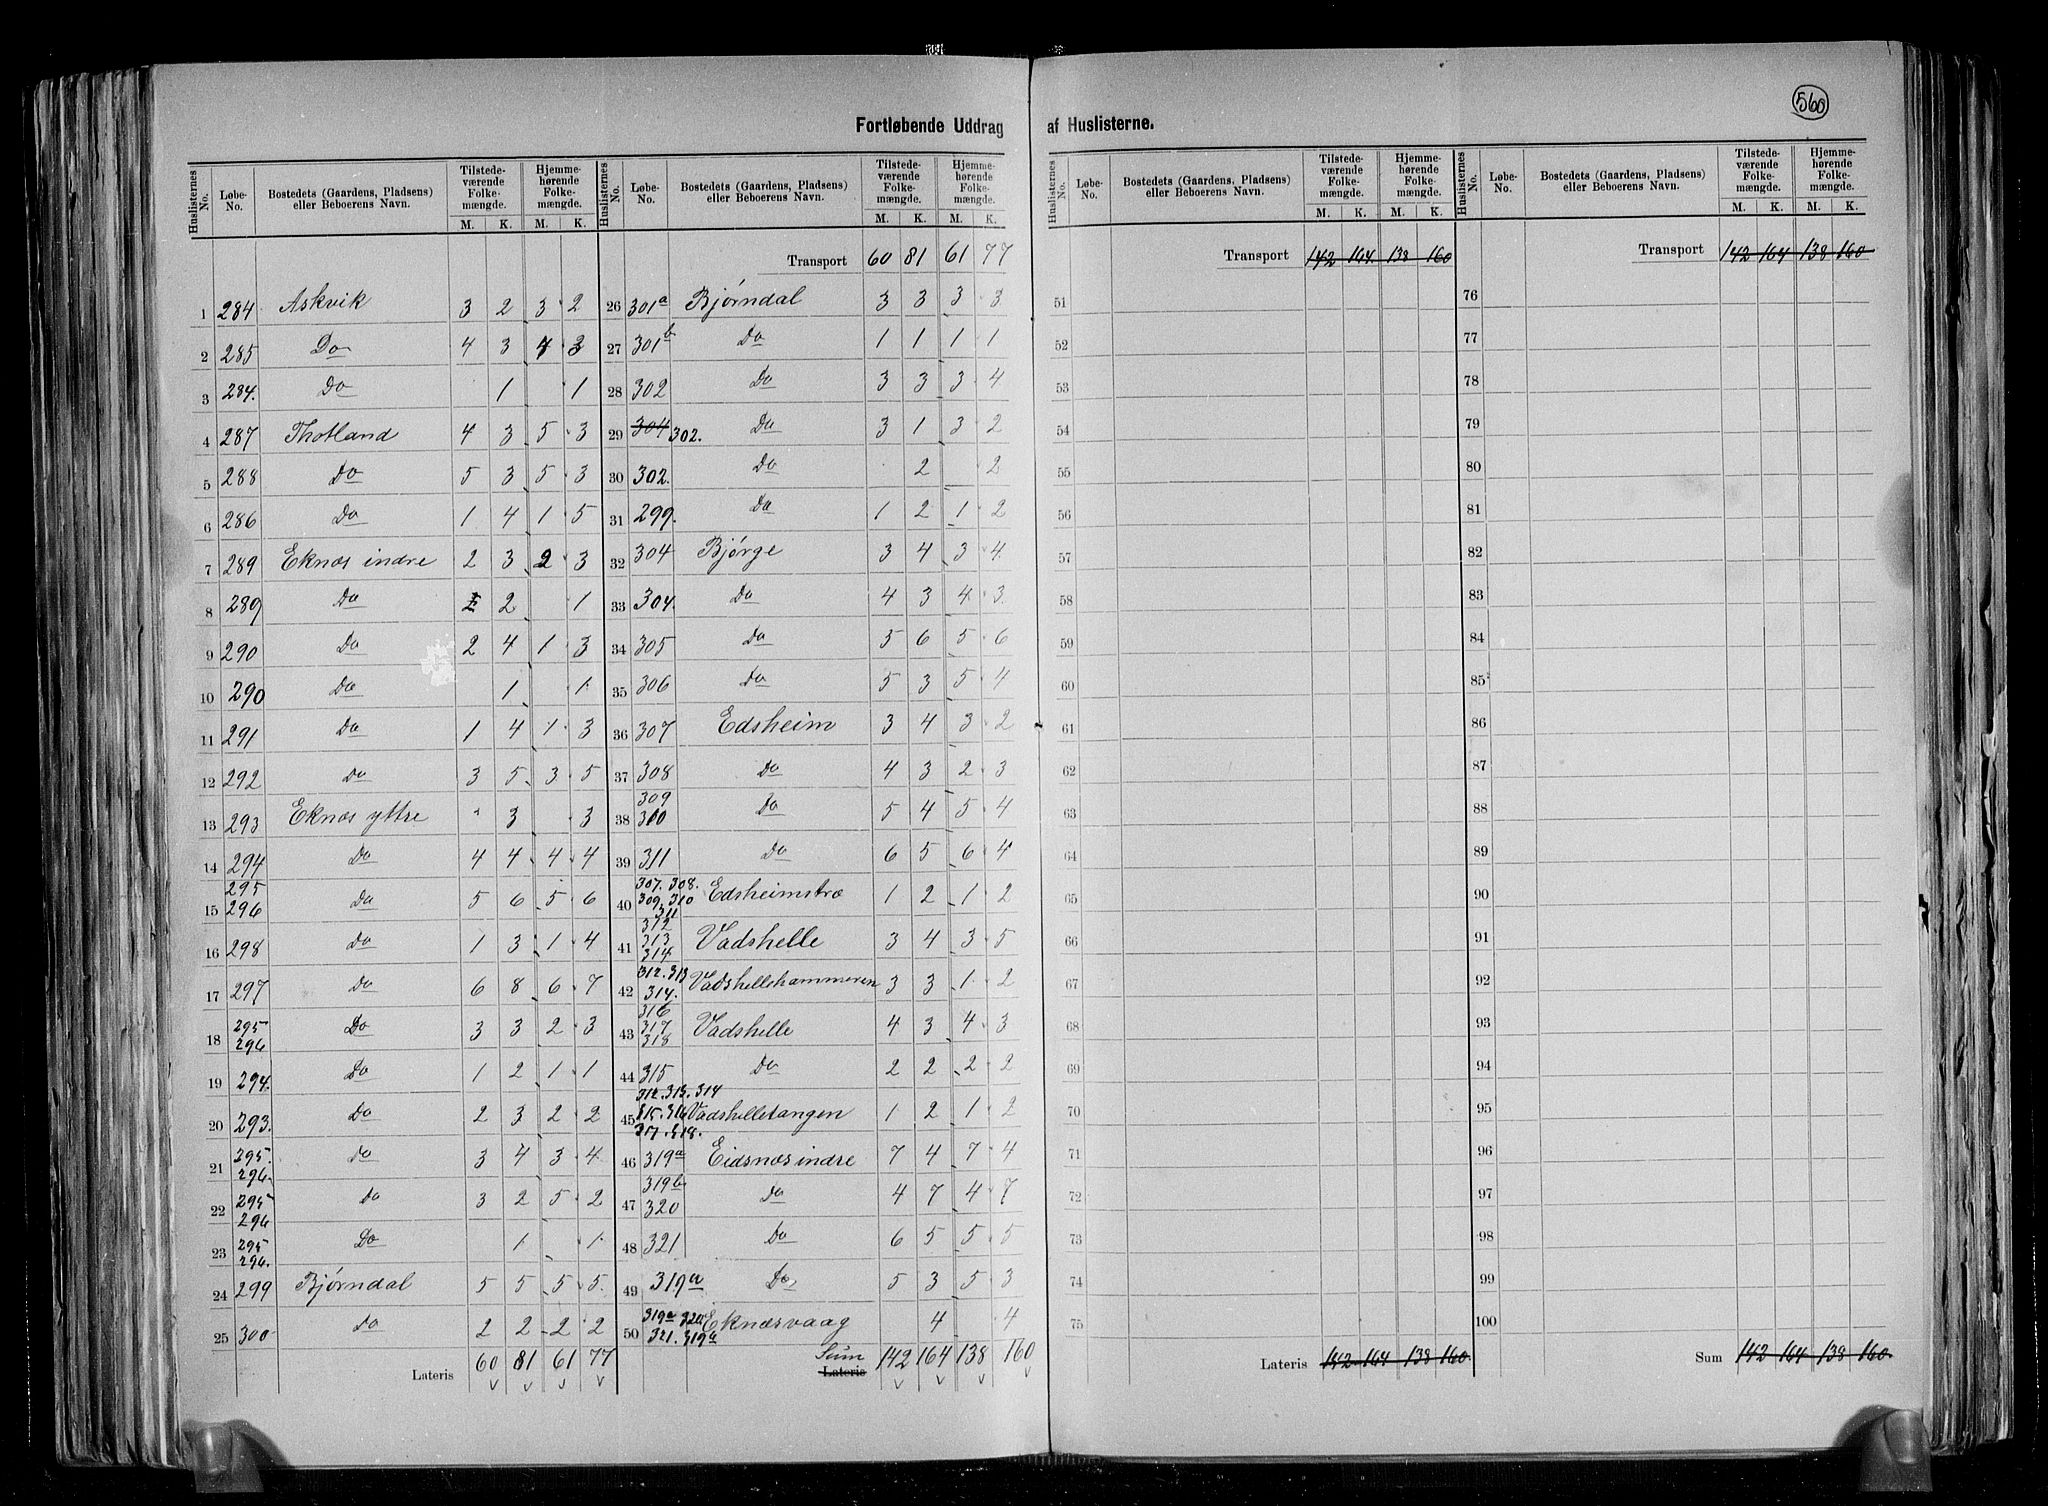 560
Fortløbende Uddrag af Huslisterne.
Huslisternes No. | Løbe-No. | Bostedets (Gaardens, Pladsens) eller Beboerens Navn. | Tilstedeværende Folkemængde. M. K. | Hjemmehørende Folkemængde. M. K.
1 284 Askvik 3 2 3 2
2 285 Do 4 3 4 3
3 284. Do 1 1
4 287 Thotland 4 3 5 3
5 288 Do 5 3 5 3
6 286 Do 1 4 1 5
7 289 Eknæs indre 2 3 2 3
8 289 Do 2 1
9 290 Do 2 4 1 3
10 290 Do 1 1
11 291 Do 1 4 1 3
12 292 Do 3 5 3 5
13 293 Eknæs yttre " 3 3
14 294 Do 4 4 4 4
15 295 296 Do 5 6 5 6
16 298 Do 1 3 1 4
17 297 Do 6 8 6 7
18 295 296 Do 3 3 2 3
19 294. Do 1 2 1 1
20 293. Do 2 3 2 2
21 295. 296. Do 3 4 3 4
22 295 296 Do 3 2 5 2
23 295 296. Do 1 1
24 299 Bjørndal 5 5 5 5
25 300 Do 2 2 2 2
Lateris 60 81 61 77
Huslisternes No. | Løbe-No. | Bostedets (Gaardens, Pladsens) eller Beboerens Navn. | Tilstedeværende Folkemængde. M. K. | Hjemmehørende Folkemængde. M. K.
Transport 60 81 61 77
26 301a Bjørndal 3 3 3 3
27 301b Do 1 1 1 1
28 302 Do 3 3 3 4
29 304 302. Do 3 1 3 2
30 302. Do 2 2
31 299. Do 1 2 1 2
32 304 Bjørge 3 4 3 4
33 304. Do 4 3 4 3
34 305 Do 5 6 5 6
35 306 Do 5 3 5 4
36 307 Edsheim 3 4 3 2
37 308 Do 4 3 2 3
38 309 310 Do 5 4 5 4
39 311 Do 6 5 6 4
40 307. 308. 309. 310 311 Edsheimstræ 1 2 1 2
41 312 313 314 Vadshelle 3 4 3 5
42 312. 313 314. Vadshellehammeren 3 3 1 2
43 316 317 318 Vadshelle 4 3 4 3
44 315 Do 2 2 2 2
45 312. 313. 314 315. 316 317. 318. Vadshelletangen 1 2 1 2
46 319a Eidsnæs indre 7 4 7 4
47 319b 320 Do 4 7 4 7
48 321 Do 6 5 5 5
49 319a Do 5 3 5 3
50 319a 320 321. 319a Eknæsvaag 4 4
Sum Lateris 142 164 138 160
Huslisternes No. | Løbe-No. | Bostedets (Gaardens, Pladsens) eller Beboerens Navn. | Tilstedeværende Folkemængde. M. K. | Hjemmehørende Folkemængde. M. K.
Transport 142 164 138 160
51
52
53
54
55
56
57
58
59
60
61
62
63
64
65
66
67
68
69
70
71
72
73
74
75
Lateris 142 164 138 160
Huslisternes No. | Løbe-No. | Bostedets (Gaardens, Pladsens) eller Beboerens Navn. | Tilstedeværende Folkemængde. M. K. | Hjemmehørende Folkemængde. M. K.
Transport 142 164 138 160
76
77
78
79
80
81
82
83
84
85
86
87
88
89
90
91
92
93
94
95
96
97
98
99
100
Sum 142 164 138 160